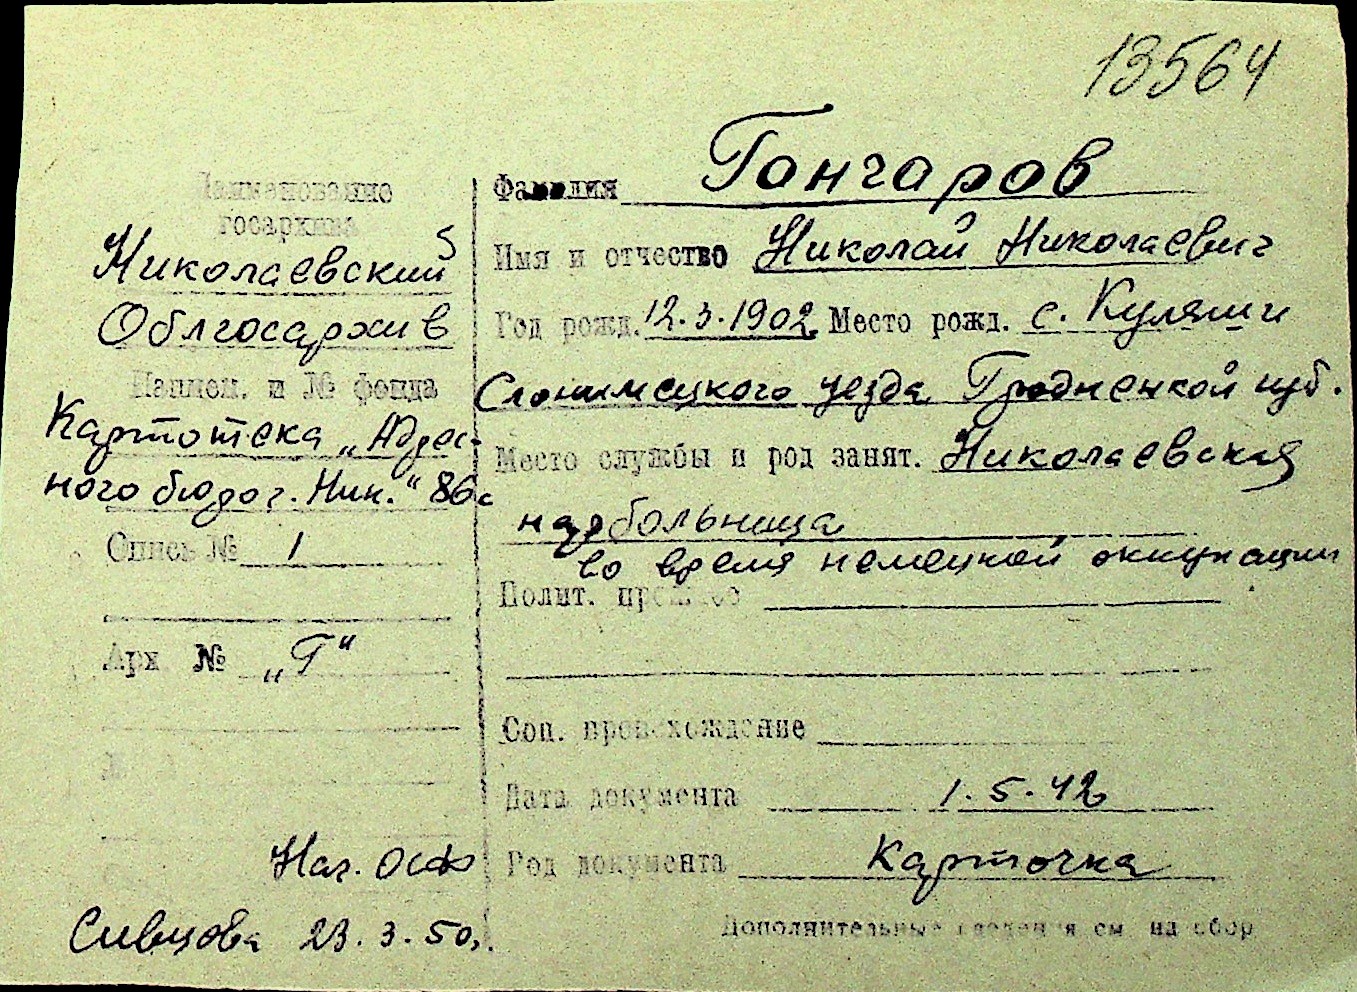 13564
Наименование
госархива
Николаевский
Облгосархив
Наимен. и № фонда
Картотека „Адрес-
ного бюро г. Ник.“ 86с
Опись № 1
Арх № „Г“
Нач. ОСФ
Сивцова 23.3.50.
Фамилия Гончаров
Имя и отчество Николай Николаевич
Год рожд. 12.3.1902 Место рожд. с. Куляши
Слонимецкого уезда Гродненкой губ.
Место службы и род занят. Николаевская
нарбольница
во время немецкой оккупации
Полит. прошлое
Соц. происхождение
Дата документа 1.5.42
Род документа Карточка
Дополнительные сведения см на обор